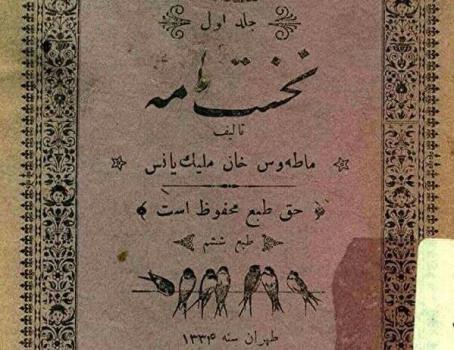 جلد اول
نخست نامه
تالیف
ماطه‌وس خان ملیک‌یانس
حق طبع محفوظ است
طبع ششم
طهران سنه ۱۳۳۴